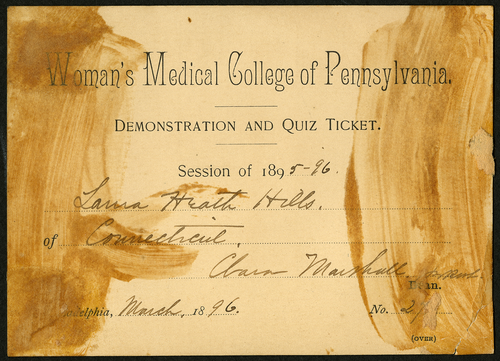 Woman's Medical College of Pennsylvania.
DEMONSTRATION AND QUIZ TICKET.
Session of 1895-96.
Laura Heath Hills.
of Connecticut.
Clara Marshall
Dean.
delphia, March, 1896. No.
(OVER)